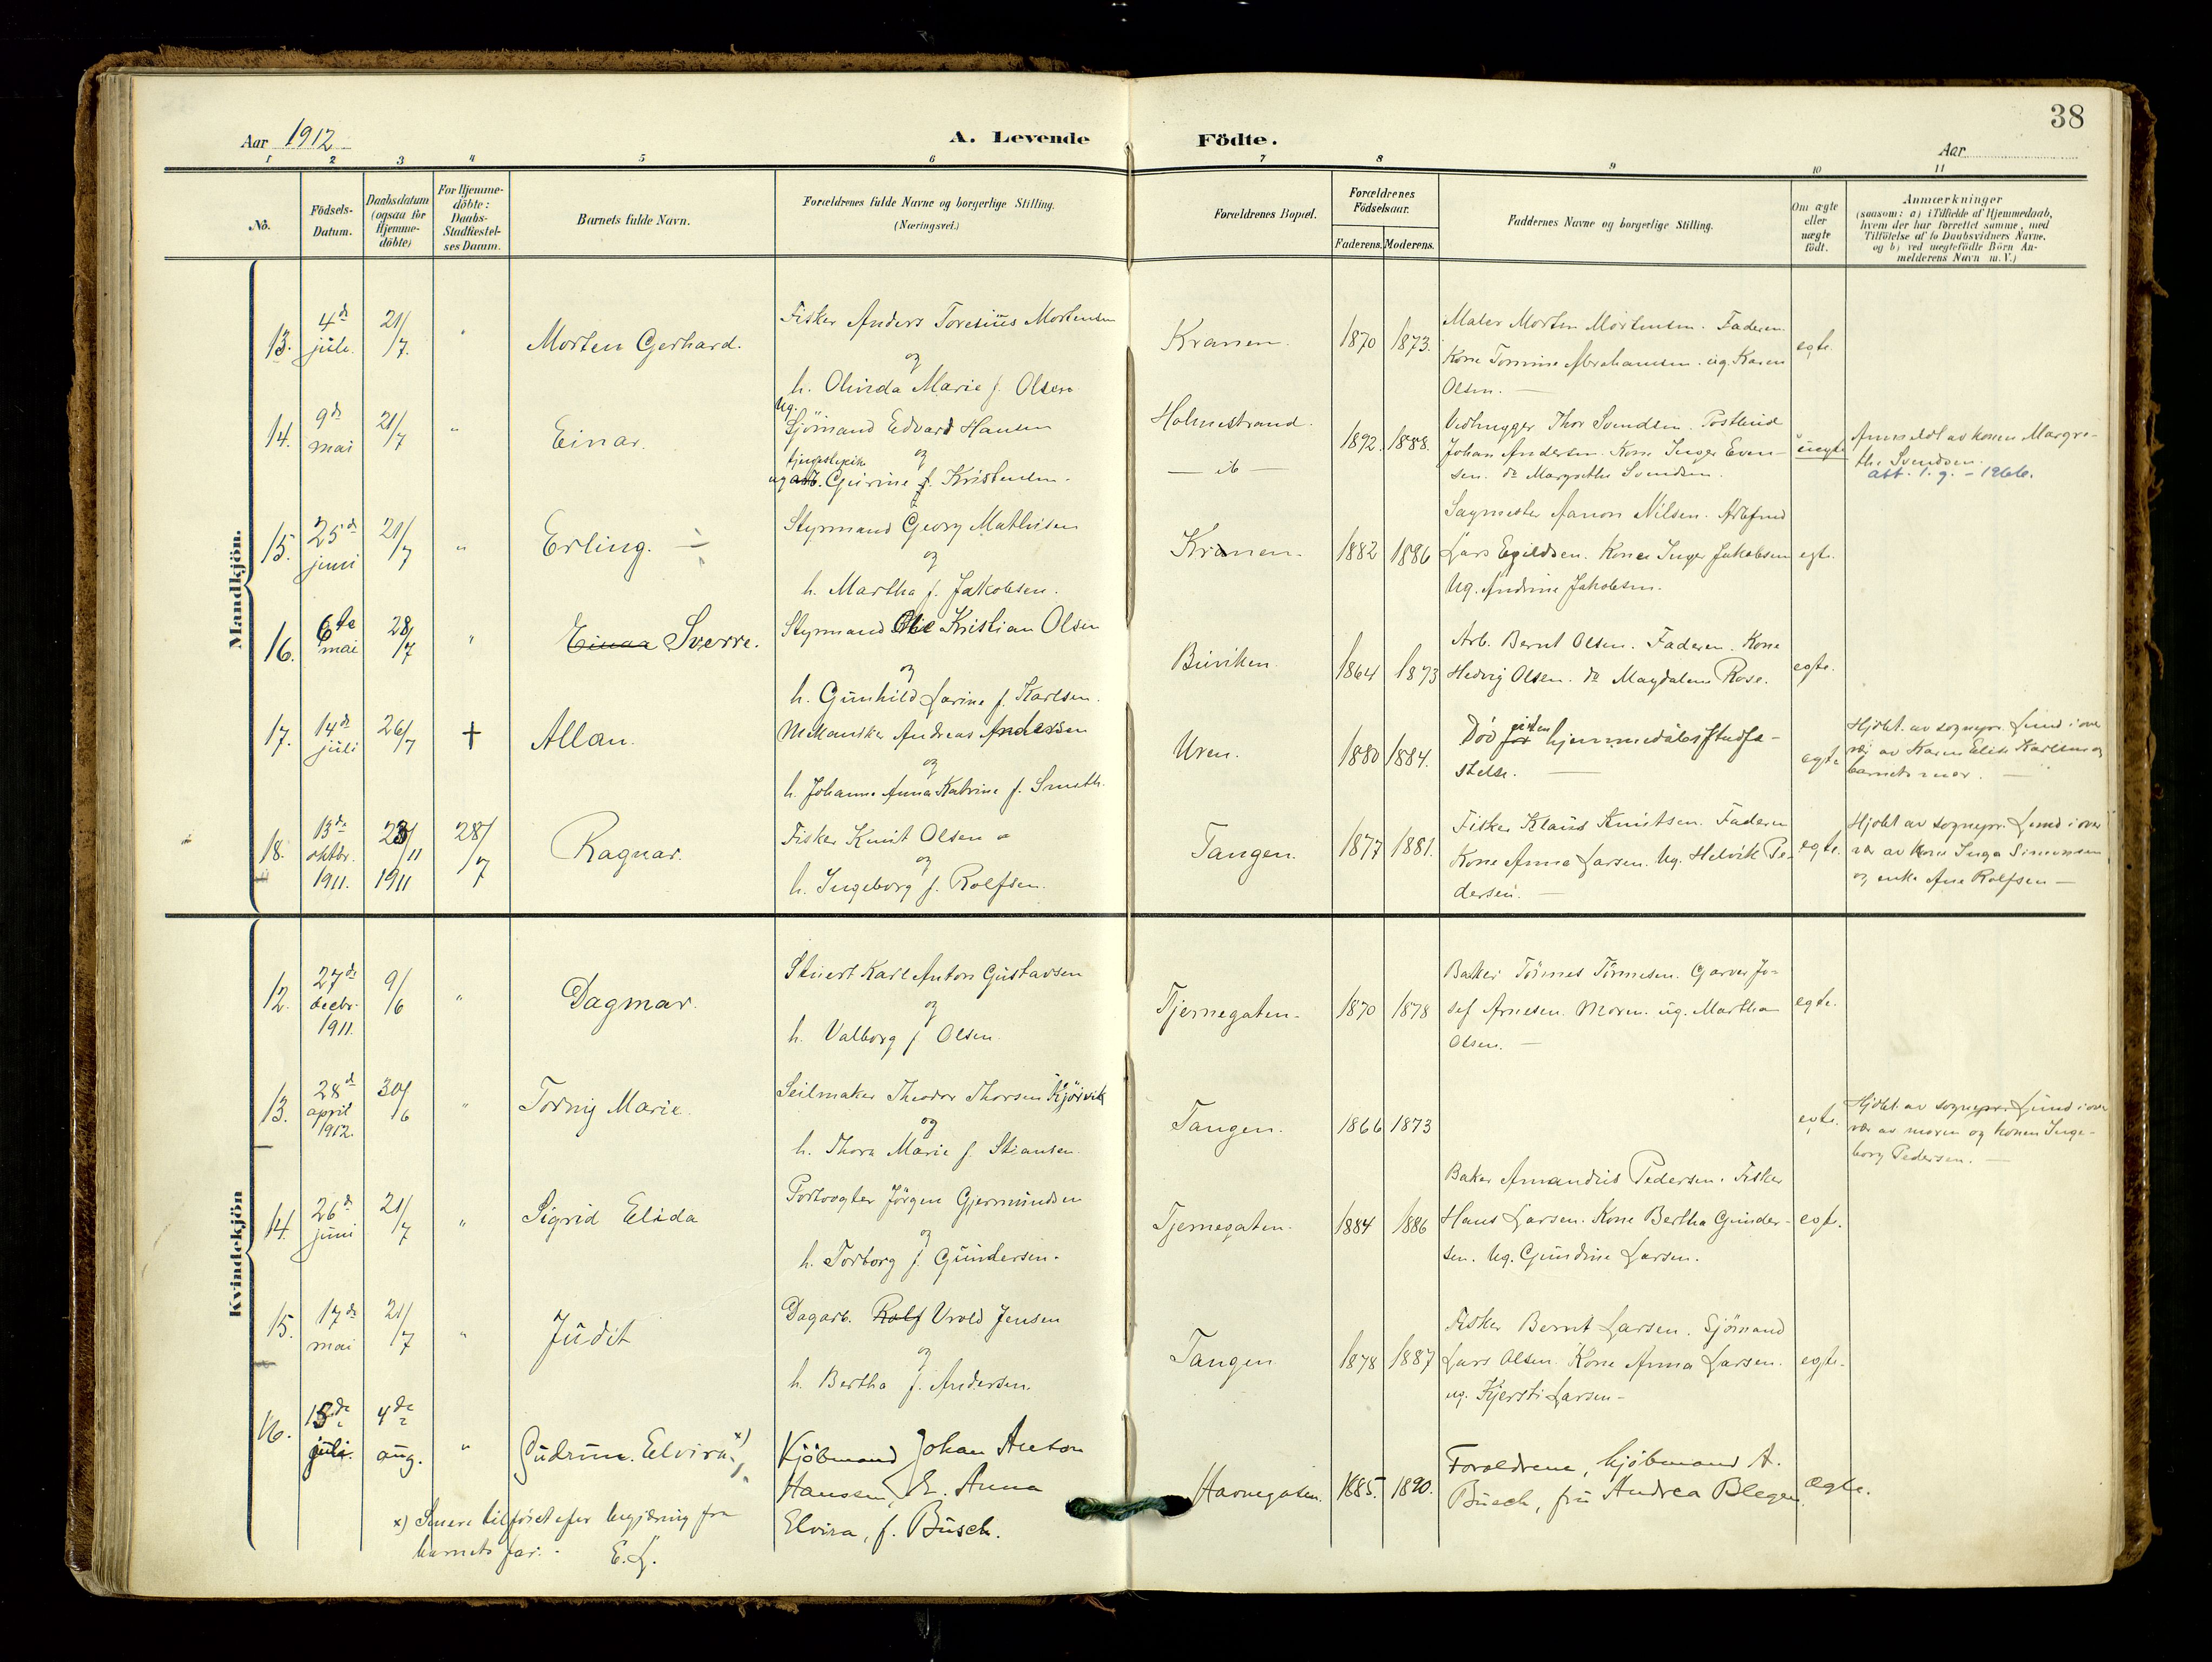 38
Aar 1912
A. Levende Födte.
Aar
1 2 3 4 5 6 7 8 9 10 11
No.
Födsels-
Datum.
Daabsdatum
(ogsaa for
Hjemme-
döbte)
For Hjemme-
döbte:
Daabs-
Stadfæstel-
ses Datum.
Barnets fulde Navn.
Forældrenes fulde Navne og borgerlige Stilling.
(Næringsvei.)
Forældrenes Bopæl.
Forældrenes
Födselsaar.
Faderens. Moderens.
Faddernes Navne og borgerlige Stilling.
Om ægte
eller
uægte
født.
Anmærkninger
(saasom: a) i Tilfælde af Hjemmedaab,
hvem der har forrettet samme, med
Tilföielse af to Daabsvidners Navne,
og b) ved uægtefödte Börn An-
melderens Navn m.V.)
Mandkjön.
13. 4de juli. 21/7. " Morten Gerhard.
Fisker Anders Toresius Mortensen
og
h. Olivida Marie f. Olsen
Kranen. 1870 1873.
Maler Morten Mortensen. Faderen
Kone Tomine Abrahamsen. ug. Karen
Olsen. —
egte.
14. 9de mai 21/7 " Einar.
Ug.
Sjömand Edvard Hansen
og
tjenestepike
ug arb. Gurine f. Kristensen.
Holmestrand.
— ib —
1892. 1888.
Thor Svendsen. Postbud
Johan Andersen. Kone Inger Even-
sen. do Margrethe Svendsen.
uegte
Anmeldt av konen Margre-
the Svendsen.
att. 1. g. - 1966.
15. 25de juni 21/7 " Erling.
Styrmand Georg Mathisen
og
h. Martha f. Jakobsen.
Kranen. 1882 1886
Sagmester Aanon Nilsen. Arbfmd
Lars Egildsen. Kone Inger Jakobsen
Ug. Andrine Jakobsen.
egte.
16. 6te mai 28/7 " Einar Sverre.
Styrmand Ole Kristian Olsen
og
h. Gunhild Larine f. Karlsen.
Buviken. 1864 1873
Arb. Bernt Olsen. Faderen. Kone
Hedvig Olsen. do Magdalene Rose.
egte.
17. 14de juli 26/7 † Allan.
Mekaniker Andreas Andersen
og
h. Johanne Anna Katrine f. Smith.
Uren. 1880 1884.
Död før uten hjemmedåbs stadfæ-
stelse. —
egte
Hjdbt. av sognepr. Lund i over
vær av Karen Elise Karlsen og
barnets mor. —
18. 13de oktbr. 1911. 23/11 1911 28/7 Ragnar.
Fisker Knut Olsen
og
h. Ingeborg f. Rolfsen.
Tangen. 1877 1881.
Fisker Klaus Knutsen. Faderen
Kone Anna Larsen. Ug. Helvik Pe-
dersen. —
egte.
Hjdbt av sognepr. Lund i over
vær av kone Inga Simonsen
og enke Ane Rolfsen —
Kvindekjön
12. 27de decbr. 1911. 9/6 " Dagmar.
Stuert Karl Anton Gustavsen
og
h. Valborg f. Olsen.
Tjernegaten. 1870 1878
Baker Tönnes Tönnesen. Garver Jo-
sef Arnesen. Moren. ug. Martha
Olsen. —
egte.
13. 28de april 1912. 30/6 " Torny Marie.
Seilmaker Theodor Thorsen Kjörvik
og
h. Thora Marie f. Stiansen.
Tangen. 1866 1873
egte.
Hjdbt. av sognepr. Lund i over
vær av moren og konen Inge-
borg Pedersen. —
14. 26de juni 21/7 " Sigrid Elida
Portvogter Jörgen Gjermundsen
og
h. Torborg f. Gundersen.
Tjernegaten. 1884 1886
Baker Amandus Pedersen. Fisker
Hans Larsen. Kone Bertha Gunder-
sen. Ug. Gundine Larsen.
egte.
15. 17de mai 21/7 " Judit
Dagarb. Rolf Vrold Jensen
og
h. Bertha f. Andersen.
Tangen 1878 1887
Fisker Bernt Larsen. Sjömand
Lars Olsen. Kone Anna Larsen.
ug. Kjersti Larsen-
egte.
16. 15de juli. 4de aug. " Gudrun. Elvira x)
Kjöbmand Johan Anton
Hanssen, & Anna
Elvira, f. Busch.
Havnegaten. 1885. 1890.
Foreldrene, kjöbmand A.
Busch, fru Andrea Blegen.
ægte.
x) Senere tilföiet efter begjæring fra
barnets far. - E.L.